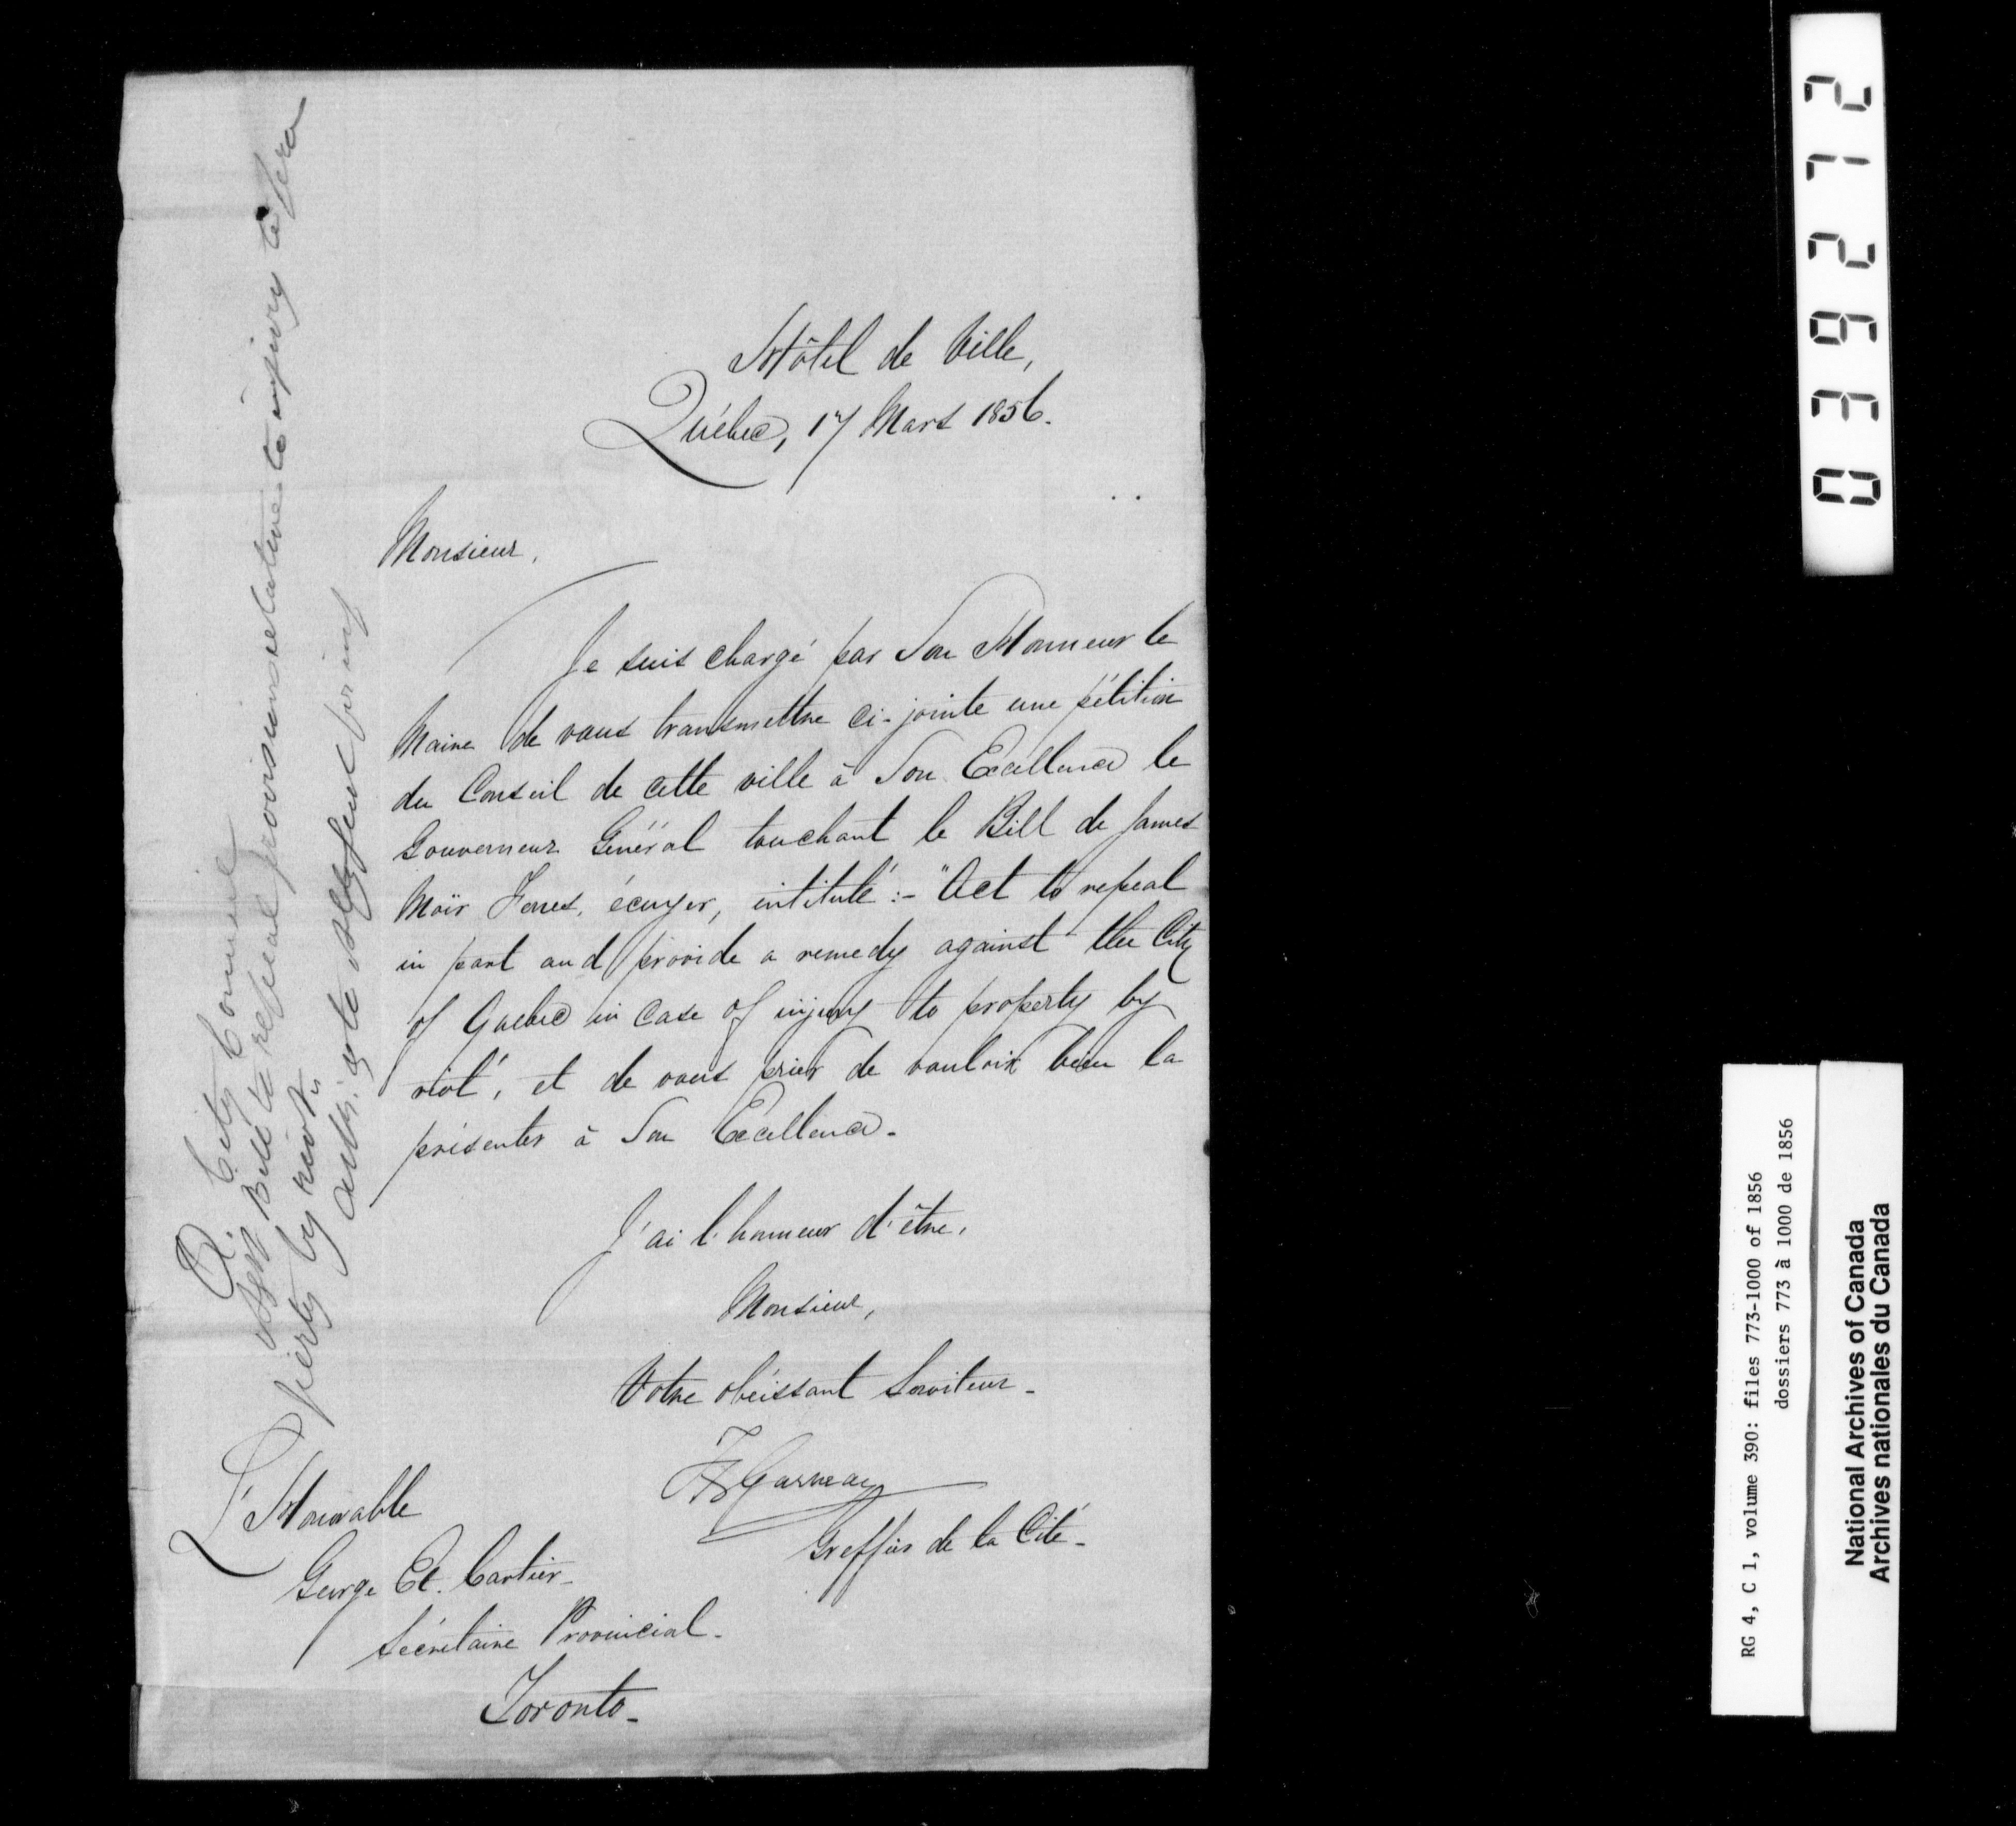 Hôtel de Ville,
Québec, 17 Mars 1856.
Monsieur,
Je suis chargé par Son Honneur le
Maire de vous transmettre ci-jointe une pétition
du Conseil de cette ville à Son Excellence le
Gouverneur Général touchant le Bill de James
Moir Ferres, écuyer, intitulé :- "Act to repeal
in part and provide a remedy against the City
of Quebec in case of injury to property by
riot", et de vous prier de vouloir bien la
présenter à Son Excellence.
J'ai l'honneur d'être,
Monsieur,
Votre obéissant Serviteur.
F X Garneau
Greffier de la Cité.
L'Honorable
George Et. Cartier.
Secrétaire Provincial.
Toronto.
Q. City Council
Bill to repeal provisions relative to injury to pro
perty by riots
0396272
RG 4, C 1, volume 390: files 773-1000 of 1856
dossiers 773 à 1000 de 1856
National Archives of Canada
Archives nationales du Canada